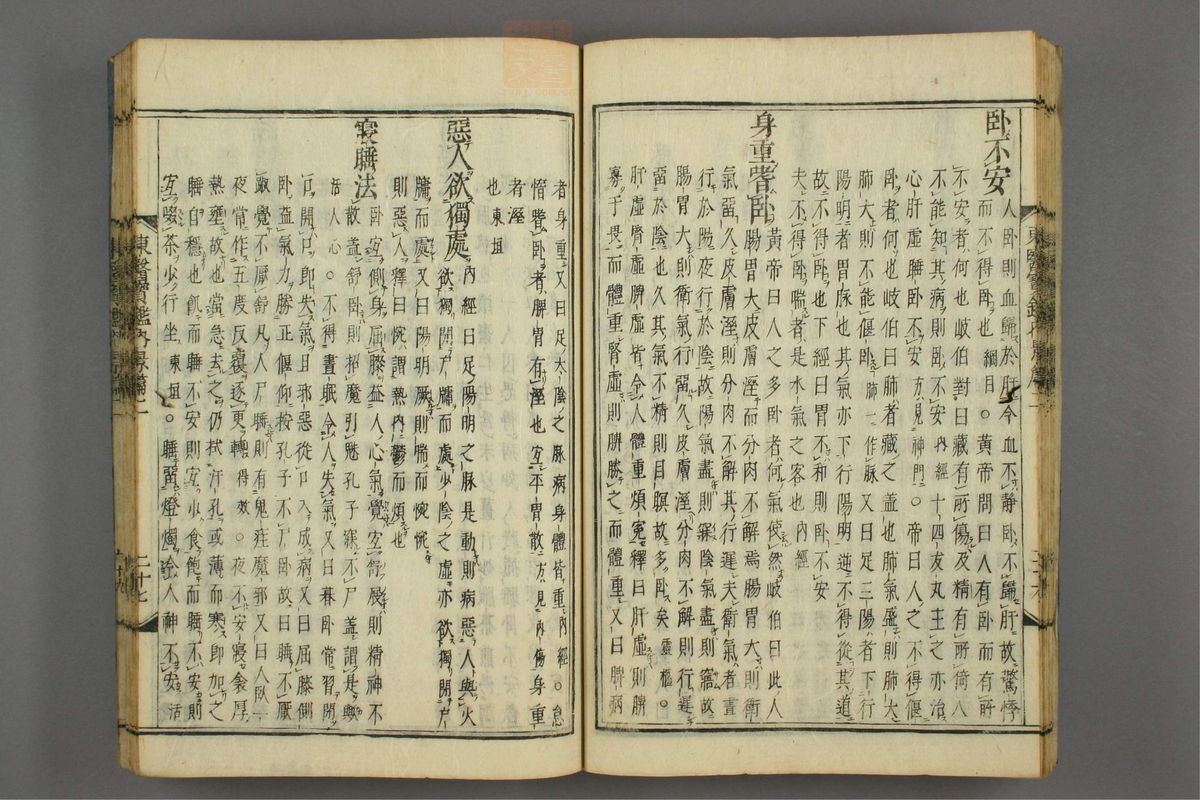 卧不安
人卧則血歸於肝今血不静卧不歸肝故驚悸
而不得卧也綱目○黃帝問曰人有卧而有所
不安者何也岐伯對曰藏有所傷及精有所倚人
不能知其病則卧不安內經十四友丸主之亦治
心肝虛睡卧不安方見神門○帝曰人之不得偃
卧者何也岐伯曰肺者藏之盖也肺氣盛則肺大
肺大則不能偃卧肺一作脉又曰足三陽者下行
陽明者胃脉也其氣亦下行陽明逆不得從其道
故不得卧也下經曰胃不和則卧不安
夫不得卧喘者是水氣之客也內經
身重嗜卧
黃帝曰人之多卧者何氣使然岐伯曰此人
腸胃大而皮膚溼而分肉不解焉腸胃大則衛
氣留久皮膚溼則分肉不解其行遲夫衛氣者晝
行於陽夜行於陰故陽氣盡則寐陰氣盡則寤故
腸胃大則衛氣行留久皮膚溼分肉不解則行遲
留於陰也久其氣不精則目瞑故多卧矣靈樞○
肝虛腎虛脾虛皆令人體重煩冤釋曰肝虛則脾
寡于畏而體重腎虛則脾勝之而體重又曰脾病
者身重又曰足太陰之脉病身體皆重內經○怠
惰嗜卧者脾胃有溼也宜平胃散方見內傷身重
者溼
也東垣
惡人欲獨處
內經曰足陽明之脉是動則病惡人與火
欲獨閉戶牖而處少陰之虛亦欲獨閉戶
牖而處又曰陽明厥則喘而惋惋
則惡人釋曰惋謂熱內鬱而煩也
寢睡法
卧宜側身屈膝益人心氣覺宜舒展則精神不
散盖舒卧則招魔引魅孔子寢不尸盖謂是與
活人心○不得晝眠令人失氣又曰暮卧常習閉
口開口卽失氣且邪惡從口入成病又曰屈膝側
卧益氣力勝正偃仰按孔子不尸卧故曰睡不厭
踧覺不厭舒凡人尸睡則有鬼疰魔邪又曰人卧一
夜常作五度反覆逐更轉得效○夜不安寢衾厚
熱壅故也當急去之仍拭汗孔或薄而寒卽加之
睡自穩也飢而睡不安則宜少食飽而睡不安則
宜啜茶少行坐東垣○睡留燈燭令人神不安活
東醫寶鑑內景篇二
二十七